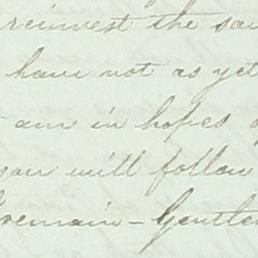 reinvest the sa
have not as yet
am in hopes o
you will follow
remain - Gentle